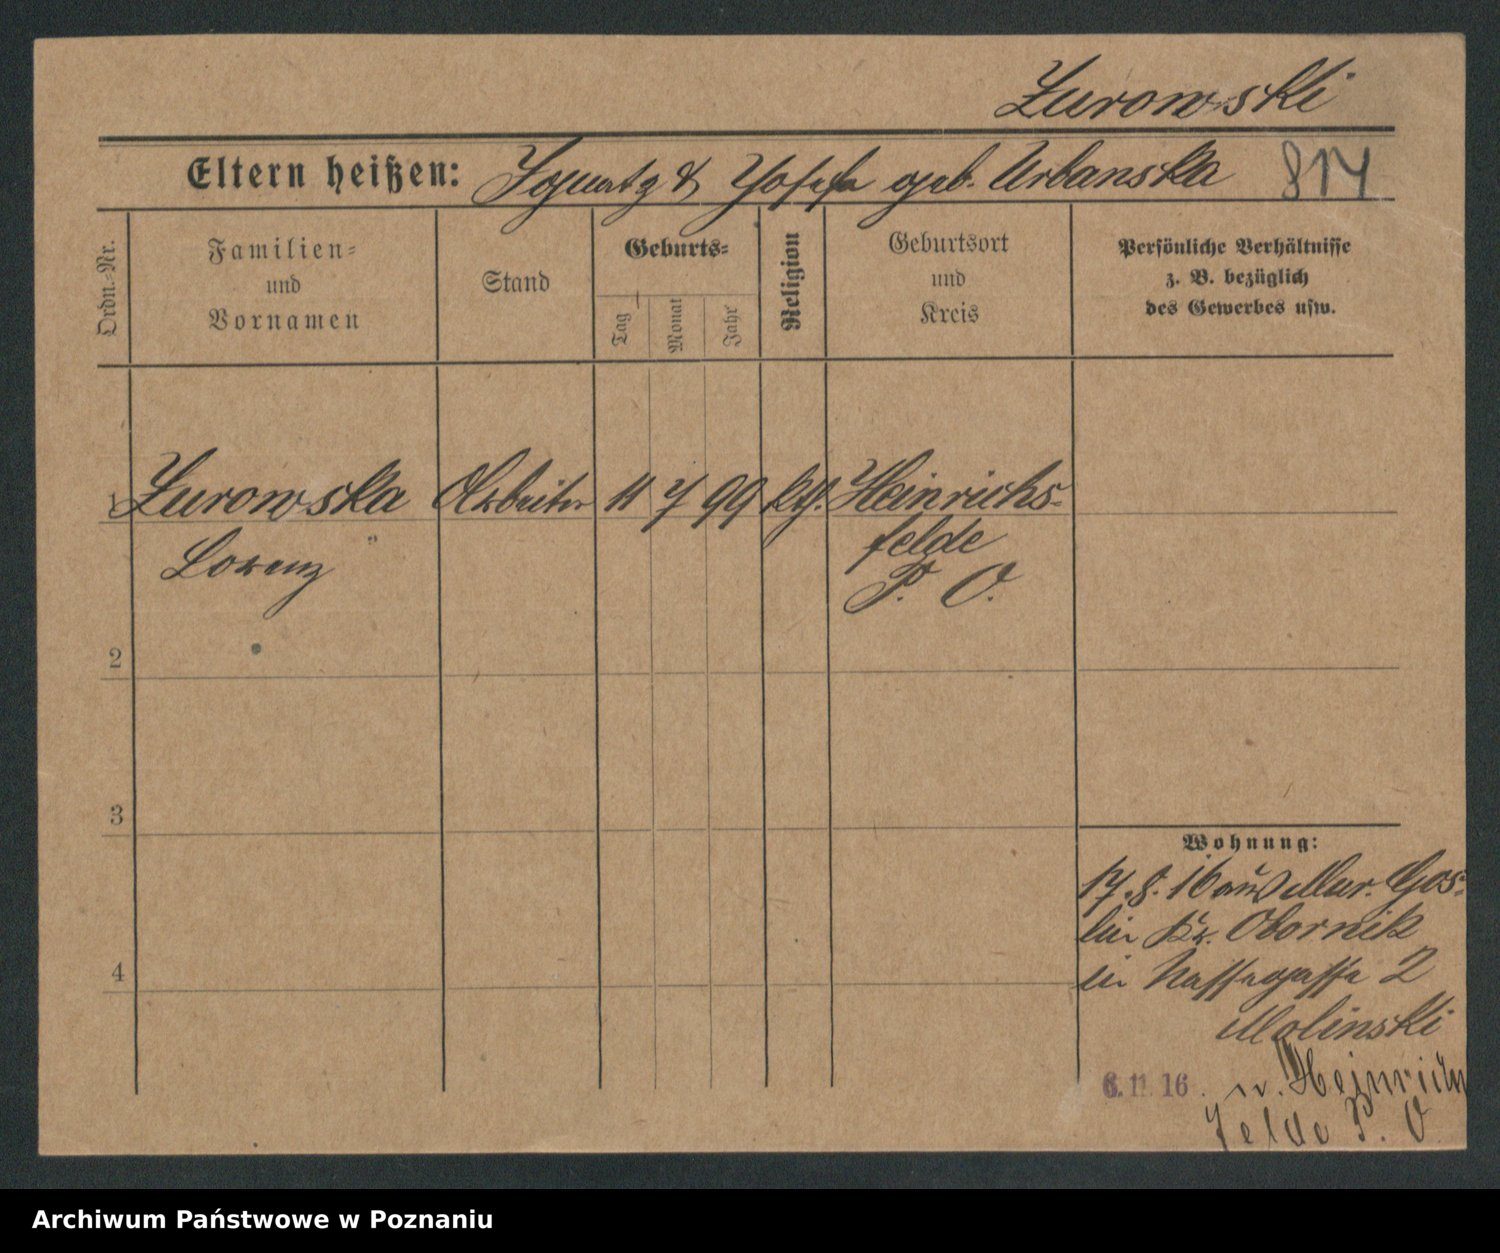 Zurowski
Eltern heißen: Ignatz & Josefa geb. Urbanska 814
Ordn.-Nr.
Familien-
und
Vornamen
Stand
Geburts-
Tag
Monat
Jahr
Religion
Geburtsort
und
Kreis
Persönliche Verhältnisse
z. B. bezüglich
des Gewerbes usw.
1 Zurowska Arbeiter 11 7 99 kth. Heinrichs-
felde
Lorenz
P. O.
2
3
4
Wohnung:
17.8.16 aus Mur. Gos-
lin Kr. Obornik
in Nassegasse 2
Molinski
6.11.16. n. Heinrichs
felde P. O.
Archiwum Państwowe w Poznaniu